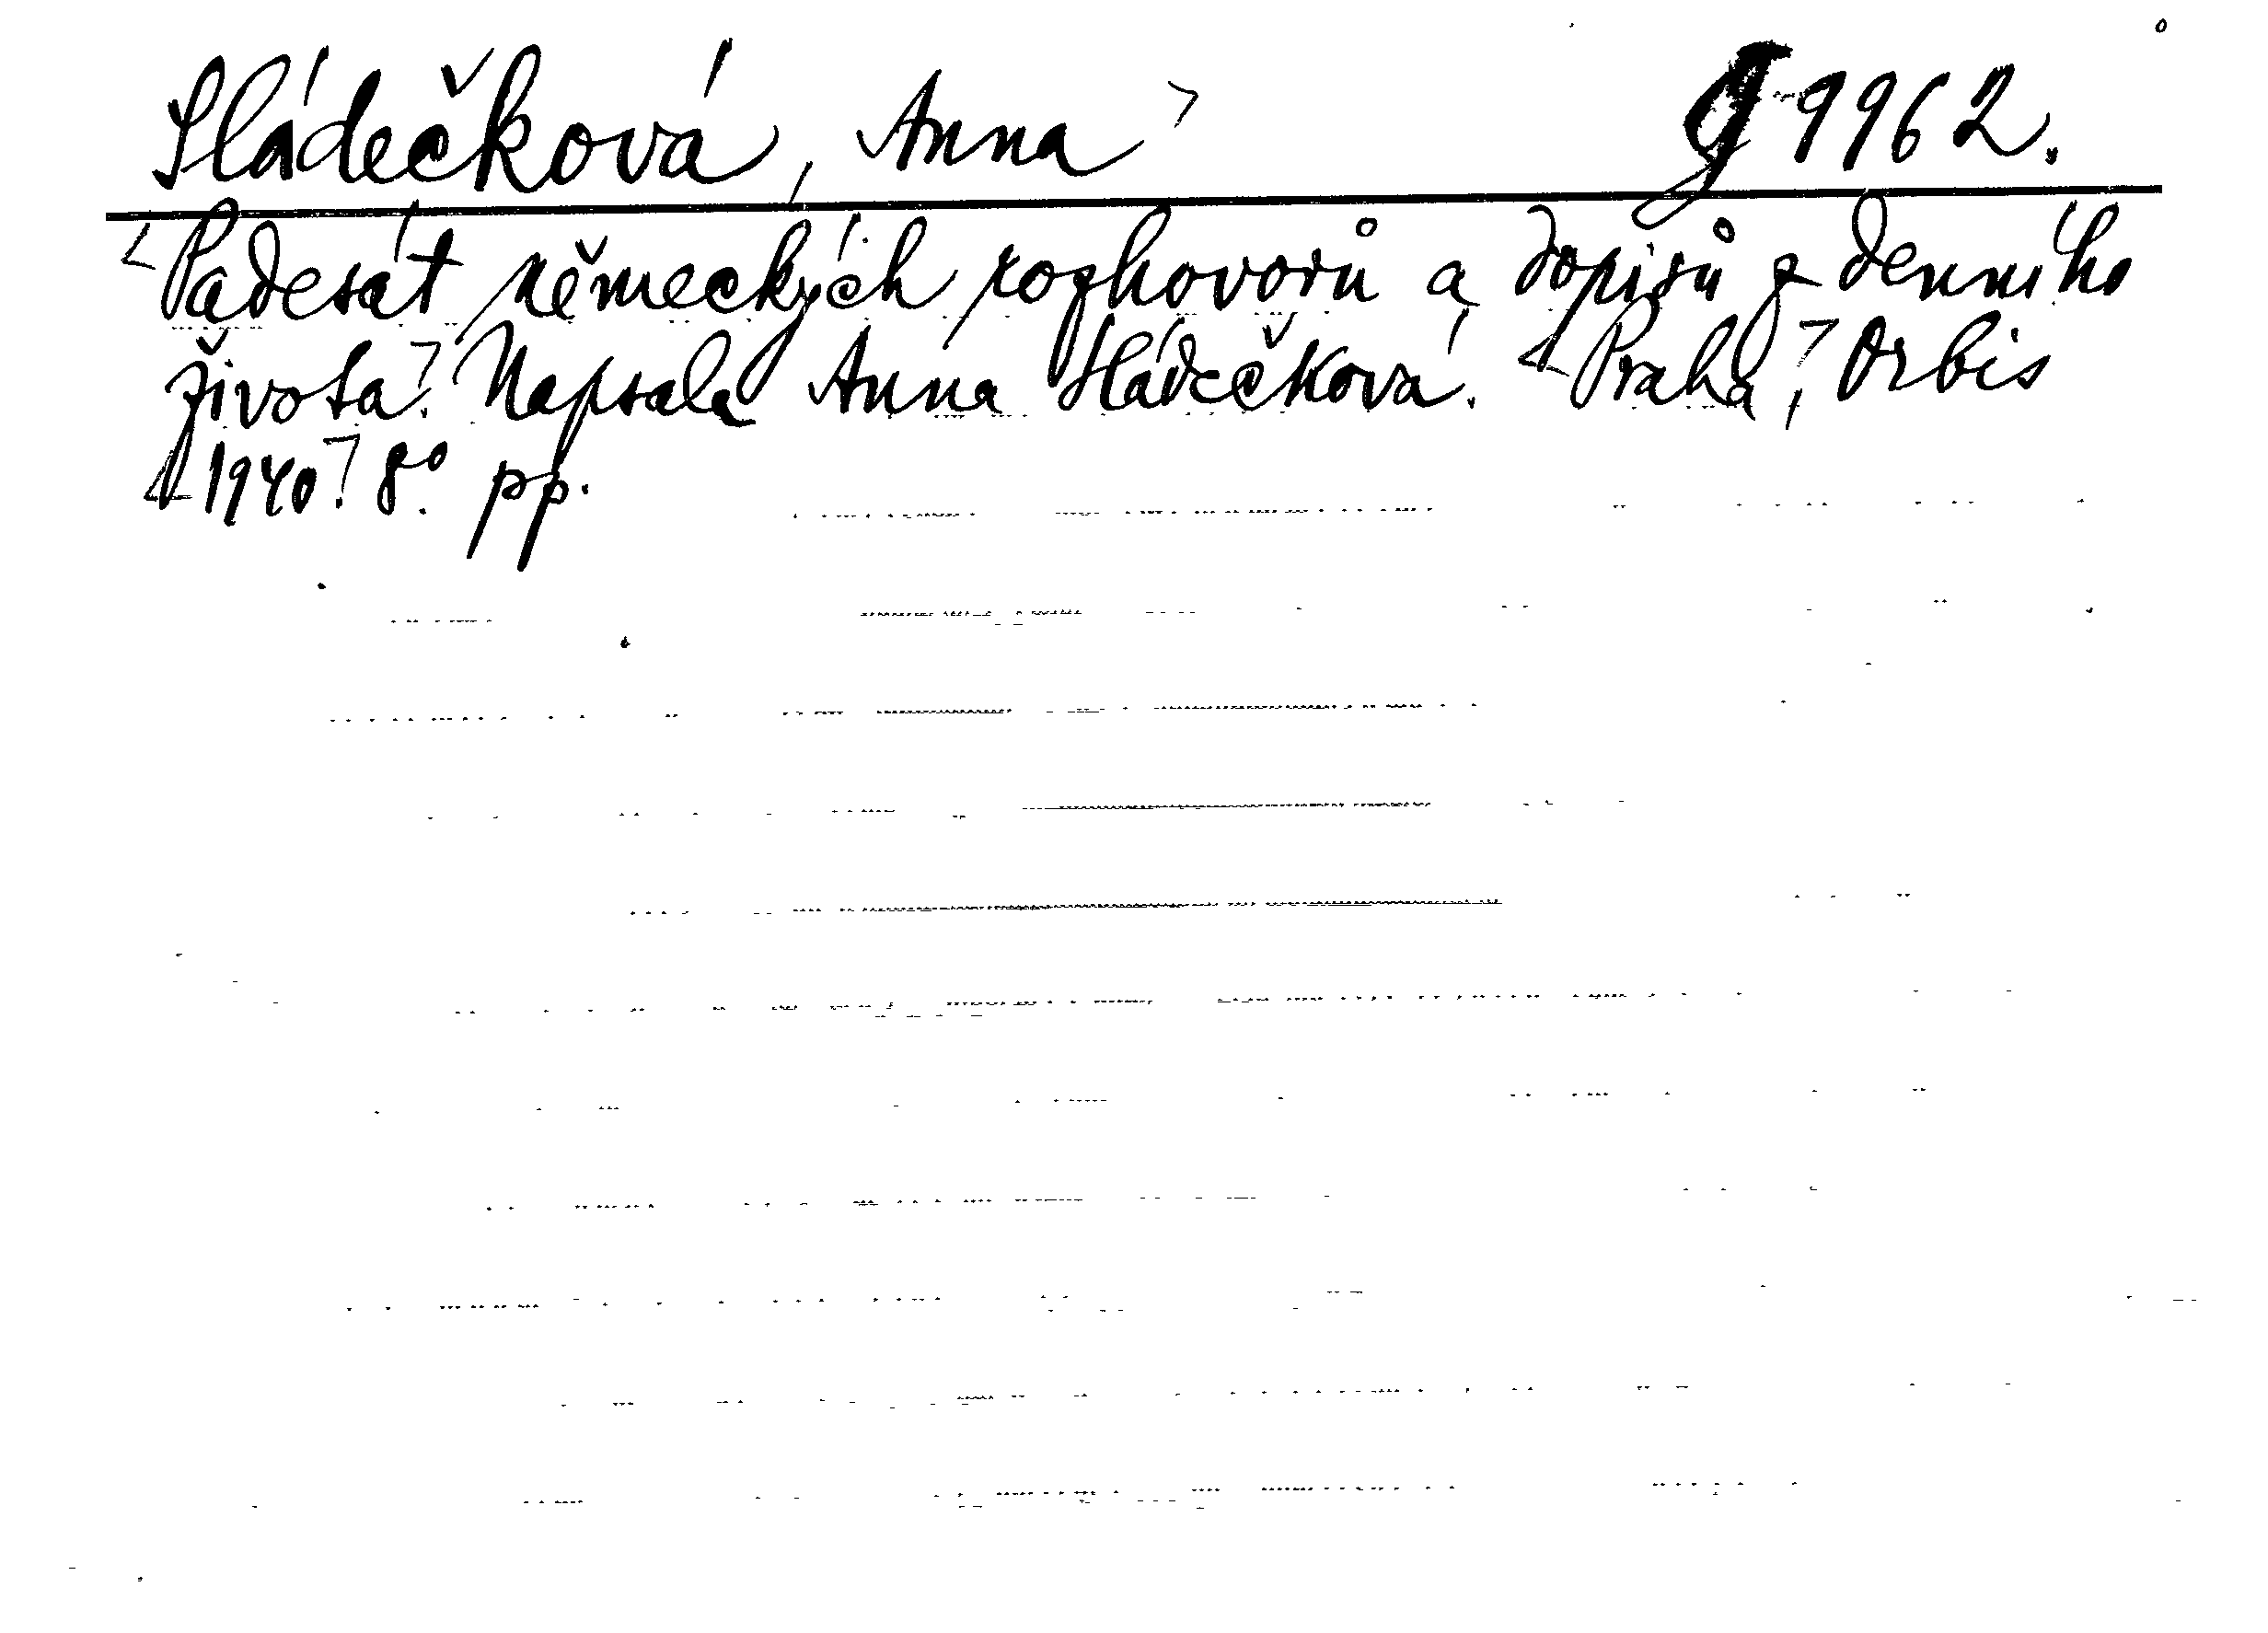 Sládečková, Anna G 9962.
Padesát německých rozhovorů a dopisů z denního
života. Napsala Anna Sládečková. Praha, Orbis
1940. 8° pp.